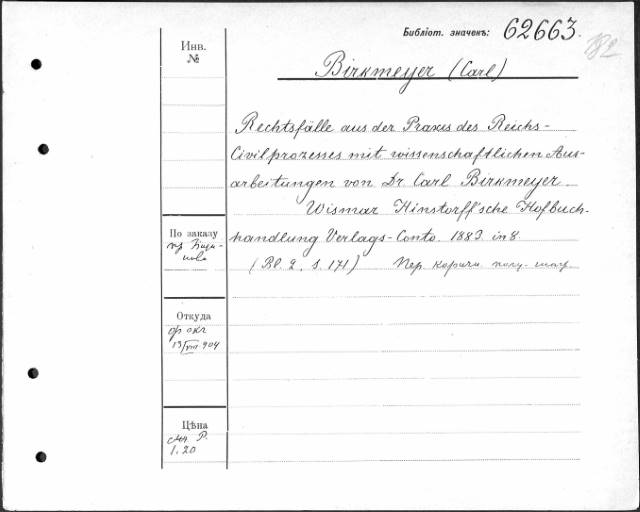 Библіот. значекъ: 62663.
Инв.
№
Birkmeyer (Carl)
Rechtsfälle aus der Praxis des Reichs-
Civilprozesses mit wissenschaftlichen Aus-
arbeitungen von Dr Carl Birkmeyer
Wismar Hinstorff'sche Hofbuch-
handlung Verlags-Conto. 1883. in 8.
(Bl. 2, S. 171) Пер. коричн.
По заказу
Откуда
13 VIII 904
Цѣна
Р.
1.20